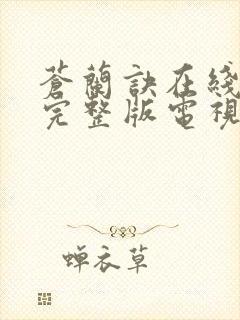 蒼蘭訣在綫
完整版電視
蝉衣草